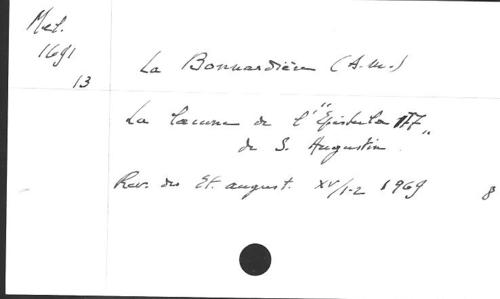 Mel.
1691
13
La Bonnardière (A.M.)
La lacune de l'"Epistula 177"
de S. Augustin
Rev. des Et. august. XV/1-2 1969
8